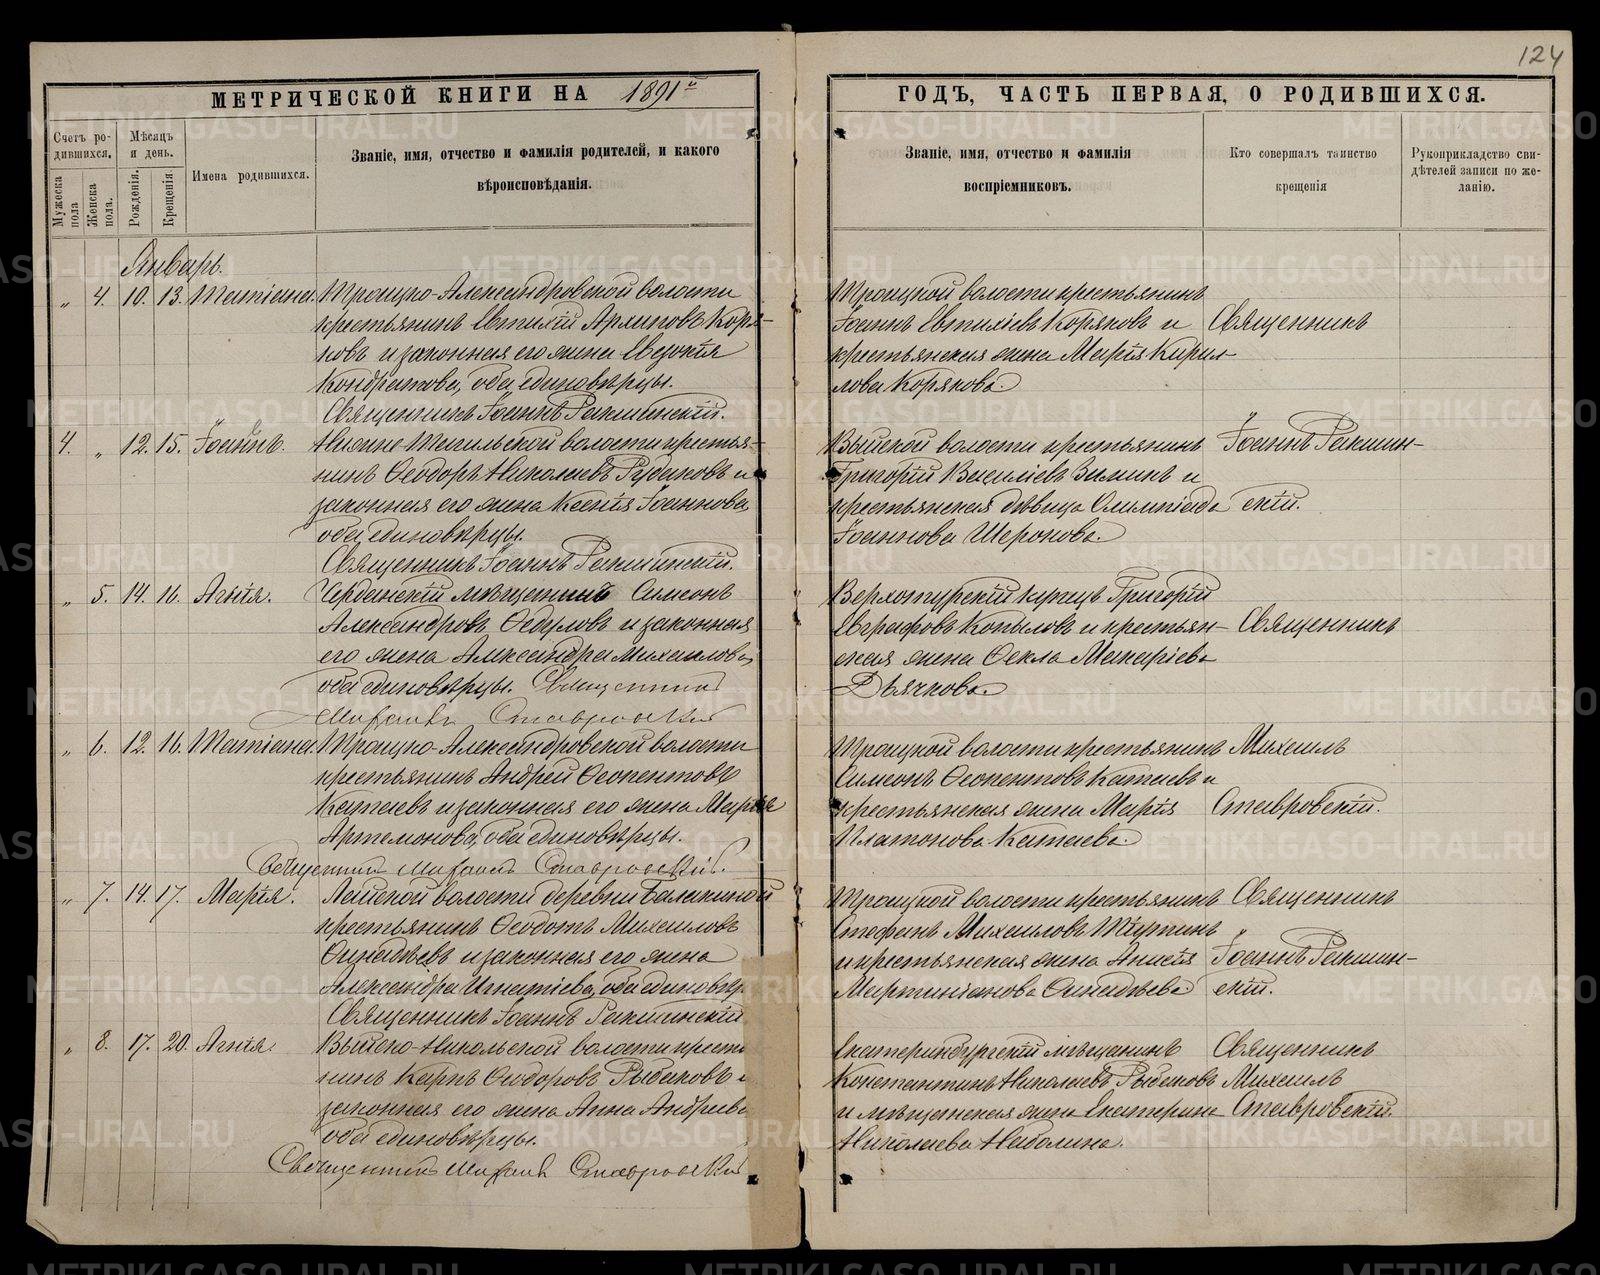 124
МЕТРИЧЕСКОЙ КНИГИ НА 1891й
ГОДЪ, ЧАСТЬ ПЕРВАЯ, О РОДИВШИХСЯ.
Счетъ ро-
дившихся.
Мужеска пола
Женска пола.
Мѣсяцъ
и день.
Рожденія.
Крещенія.
Имена родившихся.
Званіе, имя, отчество и фамилія родителей, и какого
вѣроисповѣданія.
Званіе, имя, отчество и фамилія
воспріемниковъ.
Кто совершалъ таинство
крещенія
Рукоприкладство сви-
дѣтелей записи по же-
ланію.
Январь.
„ 4. 10. 13. Татіана
Троицко-Александровской волости
крестьянинъ Евтихій Архиповъ Коря-
ковъ и законная его жена Евдокія
Кондратова, оба единовѣрцы.
Священникъ Іоаннъ Ракшинскій.
Троицкой волости крестьянинъ
Іоаннъ Евтихіевъ Коряковъ и
крестьянская жена Марія Кирил-
лова Корякова.
Священникъ
4. „ 12. 15. Іоаннъ.
Нижне-Тагильской волости крестья-
нинъ Ѳеодоръ Николаевъ Рудаковъ и
законная его жена Ксенія Іоаннова
оба единовѣрцы.
Священникъ Іоаннъ Ракшинскій.
Выйской волости крестьянинъ
Григорій Василіевъ Зиминъ и
крестьянская дѣвица Олимпіада
Іоаннова Шеронова.
Іоаннъ Ракшин-
скій.
„ 5. 14. 16. Агнія.
Чердынскій мѣщанинъ Симеонъ
Александровъ Ѳедуловъ и законная
его жена Александра Михаилова,
оба единовѣрцы. Священникъ
Михаилъ Ставровскій
Верхотурскій купецъ Григорій
Евграфовъ Копыловъ и крестьян-
ская жена Ѳекла Макаріева
Дьячкова.
Священникъ
„ 6. 12. 16. Татіана
Троицко-Александровской волости
крестьянинъ Андрей Ѳеопентовъ
Катаевъ и законная его жена Марія
Артемонова, оба единовѣрцы.
Священникъ Михаилъ Ставровскій.
Троицкой волости крестьянинъ
Симеонъ Ѳеопентовъ Катаевъ и
крестьянская жена Марія
Платонова Катаева.
Михаилъ
Ставровскій.
„ 7. 14. 17. Марія.
Лайской волости деревни Балакиной
крестьянинъ Ѳеодотъ Михаиловъ
и законная его жена
Александра Игнатіева, оба единовѣр
Священникъ Іоаннъ Ракшинскій
Троицкой волости крестьянинъ
Стефанъ Михаиловъ
и крестьянская жена Анисія
Мартиніанова
Священникъ
Іоаннъ Ракшин-
скій.
„ 8. 17. 20. Агнія.
Выйско-Никольской волости кресть
нинъ Карпъ Ѳеодоровъ Рыбаковъ и
законная его жена Анна Андреева
оба единовѣрцы.
Священникъ Михаилъ Ставровскій
Екатеринбургскій мѣщанинъ
Константинъ Николаевъ Рыбаковъ
и мѣщанская жена Екатерина
Николаева Наболина.
Священникъ
Михаилъ
Ставровскій.
METRIKI.GASO-URAL.RU